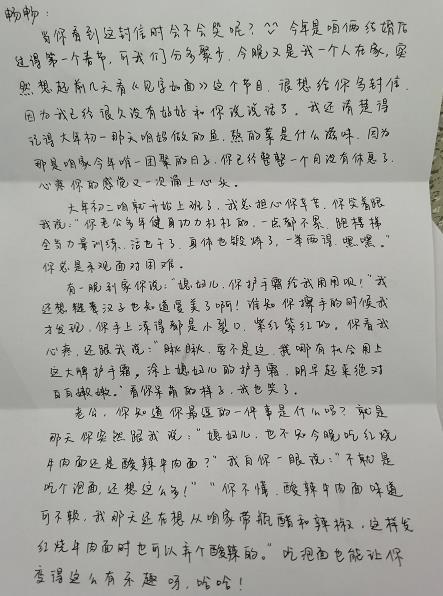 畅畅：
当你看到这封信时会不会哭呢？今年是咱俩结婚后
过得第一个春节，可我们分多聚少，今晚又是我一个人在家，突
然想起前几天看《见字如面》这个节目，很想给你写封信，
因为我已经很久没有好好和你说说话了。我还清楚得
记得大年初一那天咱妈做的鱼，熬的菜是什么滋味，因为
那是咱家今年唯一团聚的日子，你已经整整一个月没有休息了，
心疼你的感觉又一次涌上心头。
大年初二咱就开始上班了，我总担心你辛苦，你笑着跟
我说："你老公多年健身功力杠杠的，一点都不累，跑楼梯
全当力量训练，活也干了，身体也锻炼了，一举两得，嘿嘿。"
你总是乐观面对困难。
有一晚到家你说："媳妇儿，你护手霜给我用用呗！"我
还想糙老汉子也知道爱美了啊！谁知你擦手的时候我
才发现，你手上冻得都是小裂口，紫红紫红的。你看我
心疼，还跟我说："瞅瞅，要不是这，我哪有机会用上
这大牌护手霜。涂上媳妇儿的护手霜，明早起来绝对
白白嫩嫩。"看你呆萌的样子，我也笑了。
老公，你知道你最逗的一件事是什么吗？就是
那天你突然跟我说："媳妇儿，也不知今晚吃红烧
牛肉面还是酸辣牛肉面？"我白你一眼说："不就是
吃个泡面，还想这么多！""你不懂，酸辣牛肉面味道
可不赖，我那天还在想从咱家带瓶醋和辣椒，这样发
红烧牛肉面时也可以弄个酸辣的。"吃泡面也能让你
变得这么有乐趣呀，哈哈！